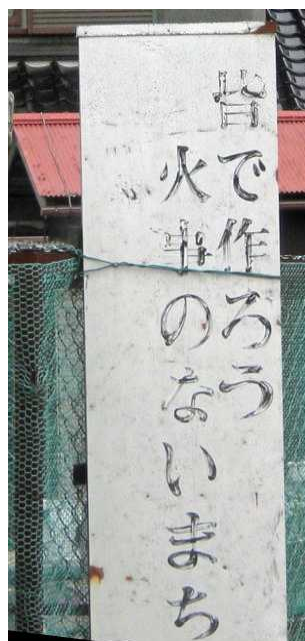 皆で作ろう
火事のないまち